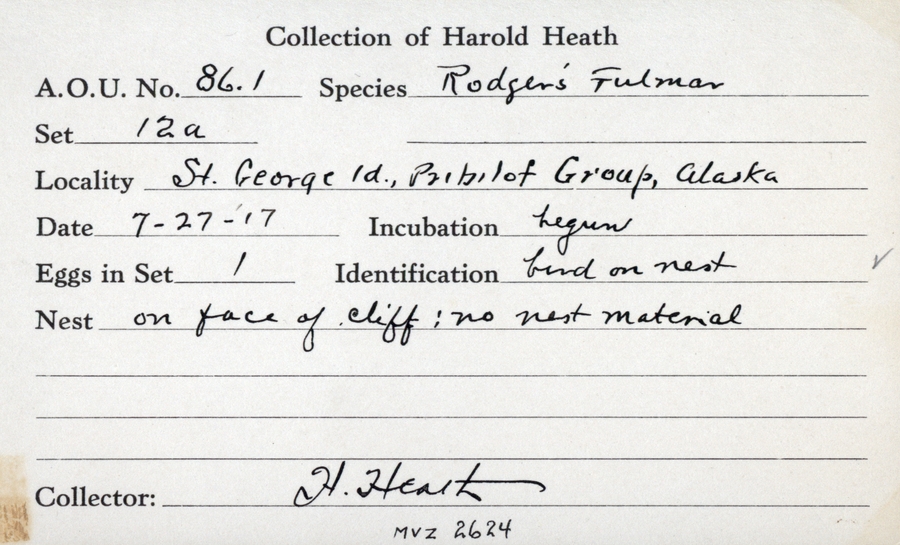 Collection of Harold Heath
A.O.U. No. 86.1 Species Rodger's Fulmar
Set 12a
Locality St. George Id., Pribilof Group, Alaska
Date 7-27-'17 Incubation begun
Eggs in Set 1 Identification bird on nest ✓
Nest on face of cliff; no nest material
Collector: H. Heath
MVZ 2624